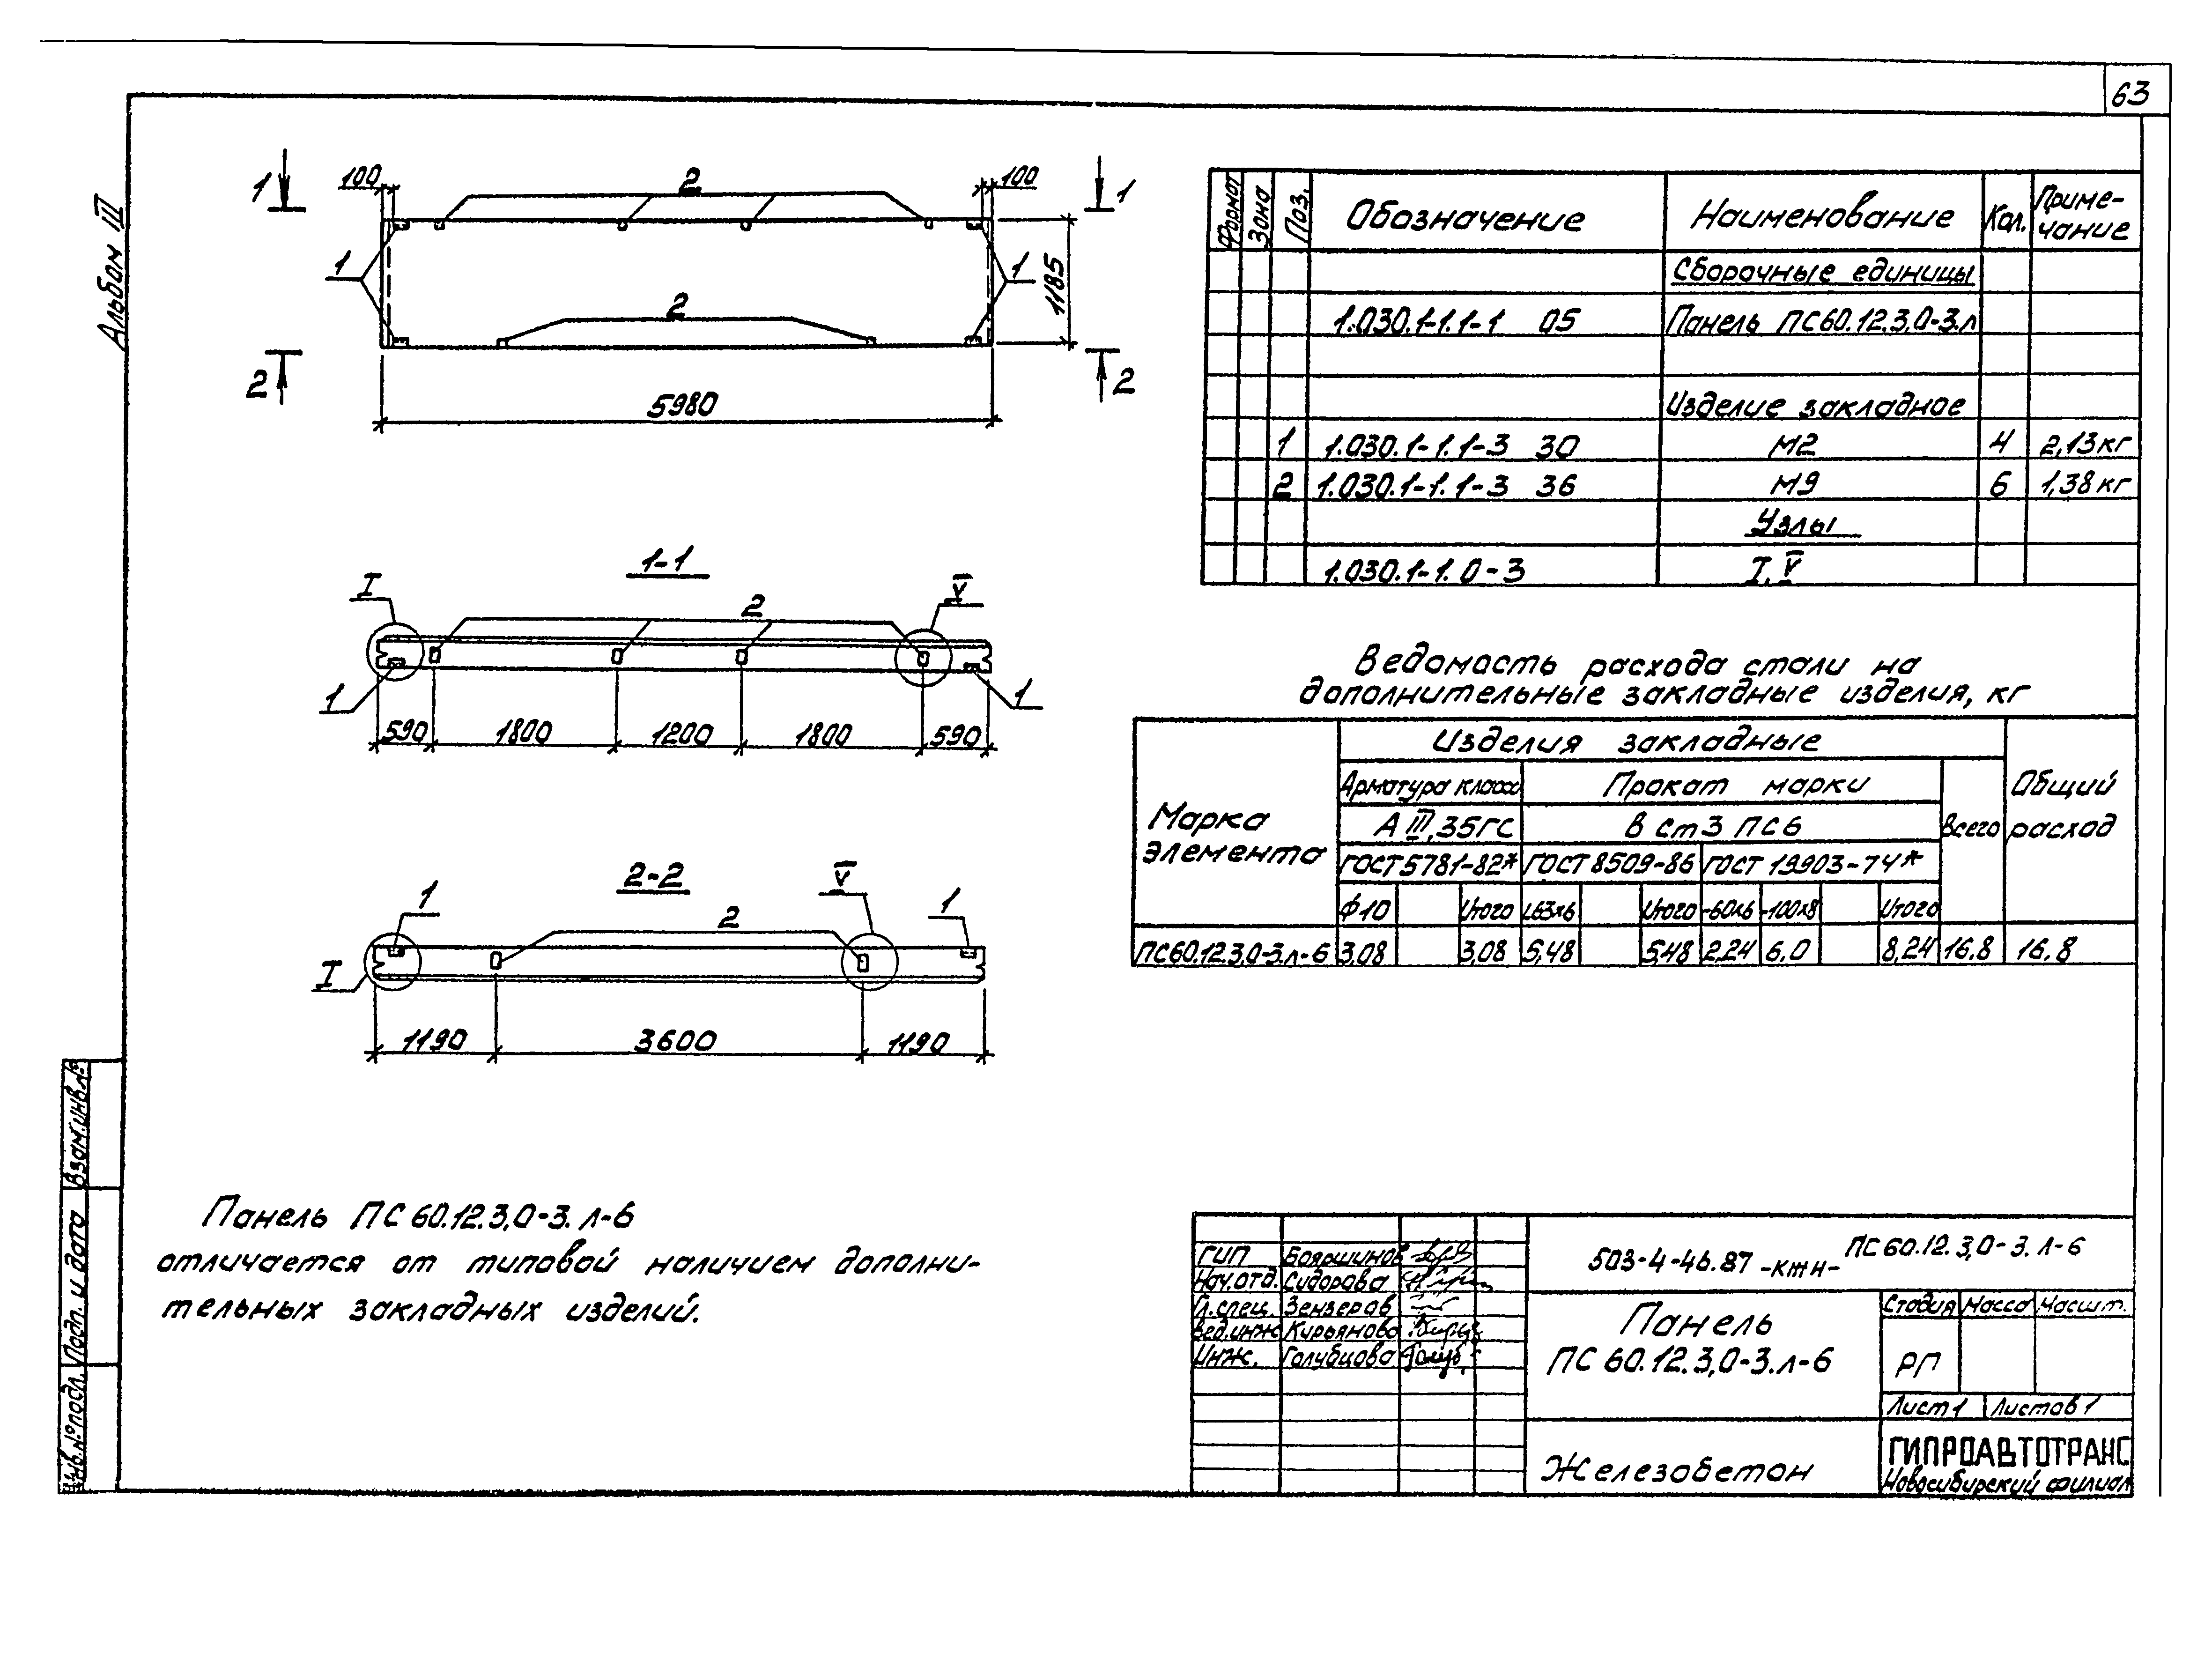 63
Альбом III
1 100 2 100 1
1 1
2
1185
2 2
5980
1-1
I 2 V
1 1
590 1800 1200 1800 590
2-2
V
1 2 1
I
1190 3600 1190
Панель ПС 60.12.3,0-3.л-6
отличается от типовой наличием дополни-
тельных закладных изделий.
Формат Зона Поз. Обозначение Наименование Кол. Приме-
чание
Сборочные единицы
1.030.1-1.1-1 05 Панель ПС60.12.3,0-3.л
Изделие закладное
1 1.030.1-1.1-3 30 М2 4 2,13кг
2 1.030.1-1.1-3 36 М9 6 1,38кг
Узлы
1.030.1-1.0-3 I, V
Ведомость расхода стали на
дополнительные закладные изделия, кг
Марка элемента
Изделия закладные
Общий расход
Арматура класса Прокат марки
Всего
А III, 35ГС В Ст3 ПС6
ГОСТ 5781-82* ГОСТ 8509-86 ГОСТ 19903-74*
Ф10 Итого L63х6 Итого -60х6 -100х8 Итого
ПС60.12.3,0-3.л-6 3,08 3,08 5,48 5,48 2,24 6,0 8,24 16,8 16,8
ГИП Бояршинов
Нач.отд. Сидорова
Гл.спец. Зензеров
Вед.инж Кирьянова
Инж. Голубцова
503-4-46.87 -КЖИ- ПС60.12.3,0-3.л-6
Панель
ПС 60.12.3,0-3.л-6
Стадия Масса Масшт.
РП
Лист 1 Листов 1
Железобетон
ГИПРОАВТОТРАНС
Новосибирский филиал
Инв.№подл. Подп. и дата Взам.инв.№